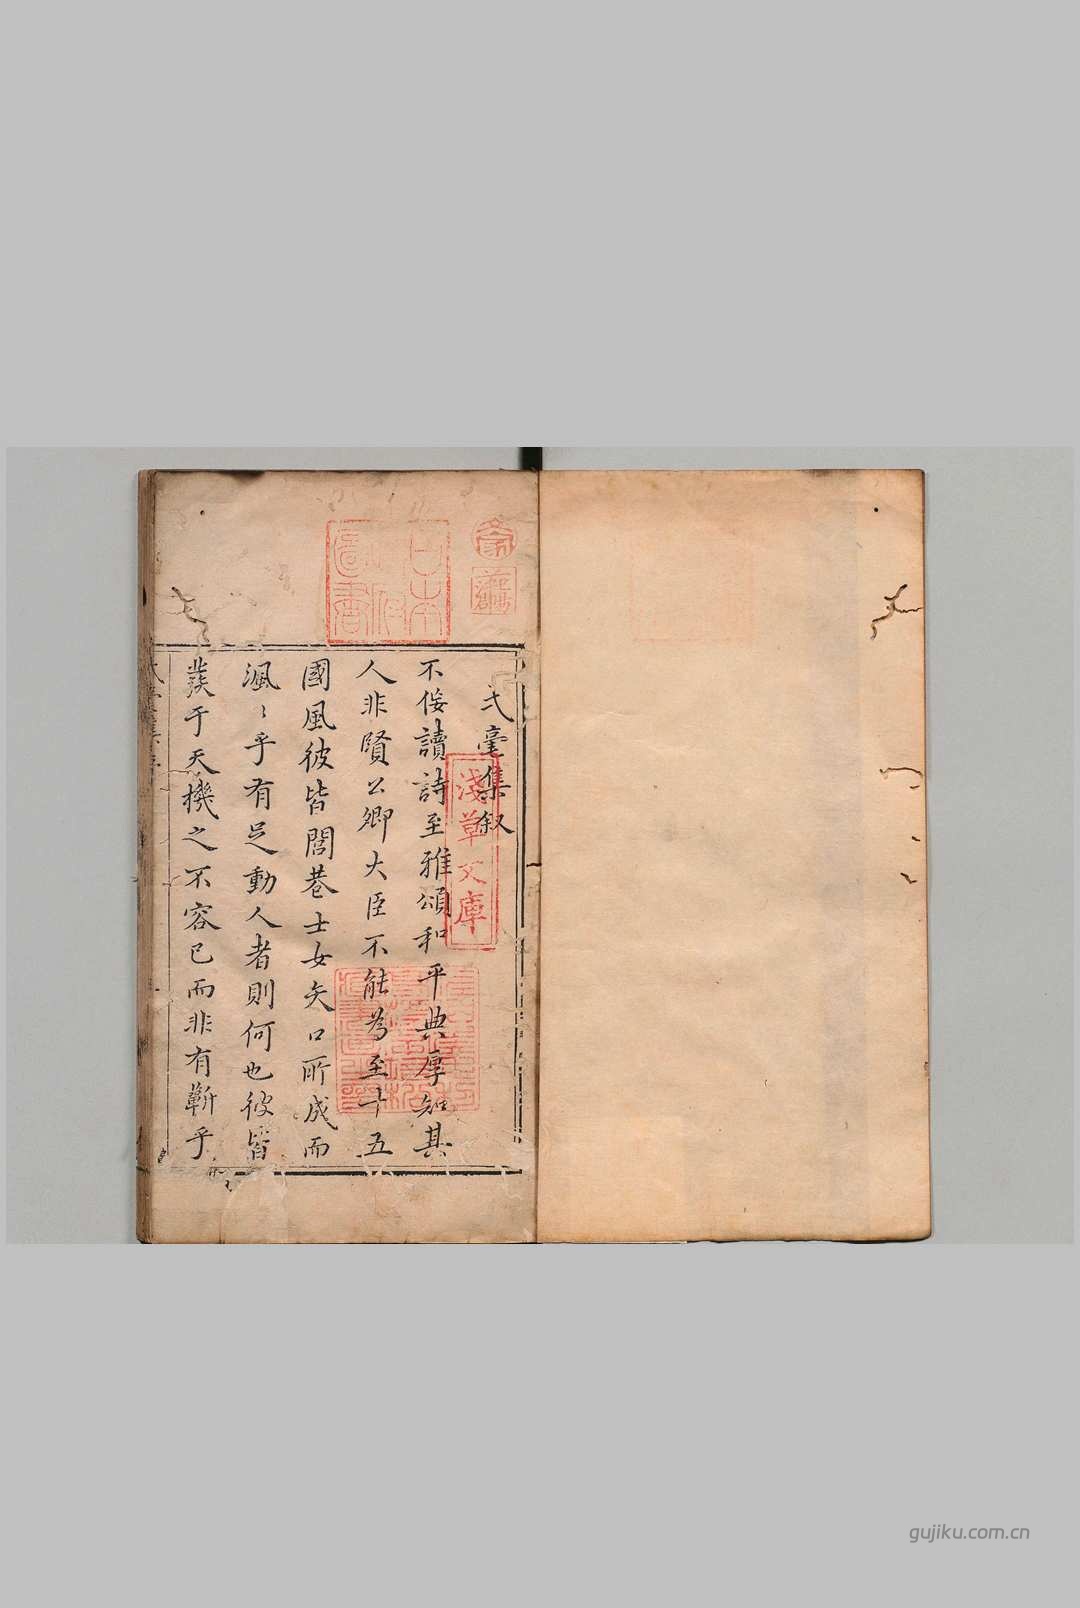 弌毫集叙
不佞讀詩至雅頌和平典厚知其
人非賢公卿大臣不能為至十五
國風彼皆閭巷士女矢口所成而
渢〻乎有足動人者則何也彼皆
蕟于天機之不容已而非有蘄乎
日本
政府
圖書
淺草文庫
gujiku.com.cn